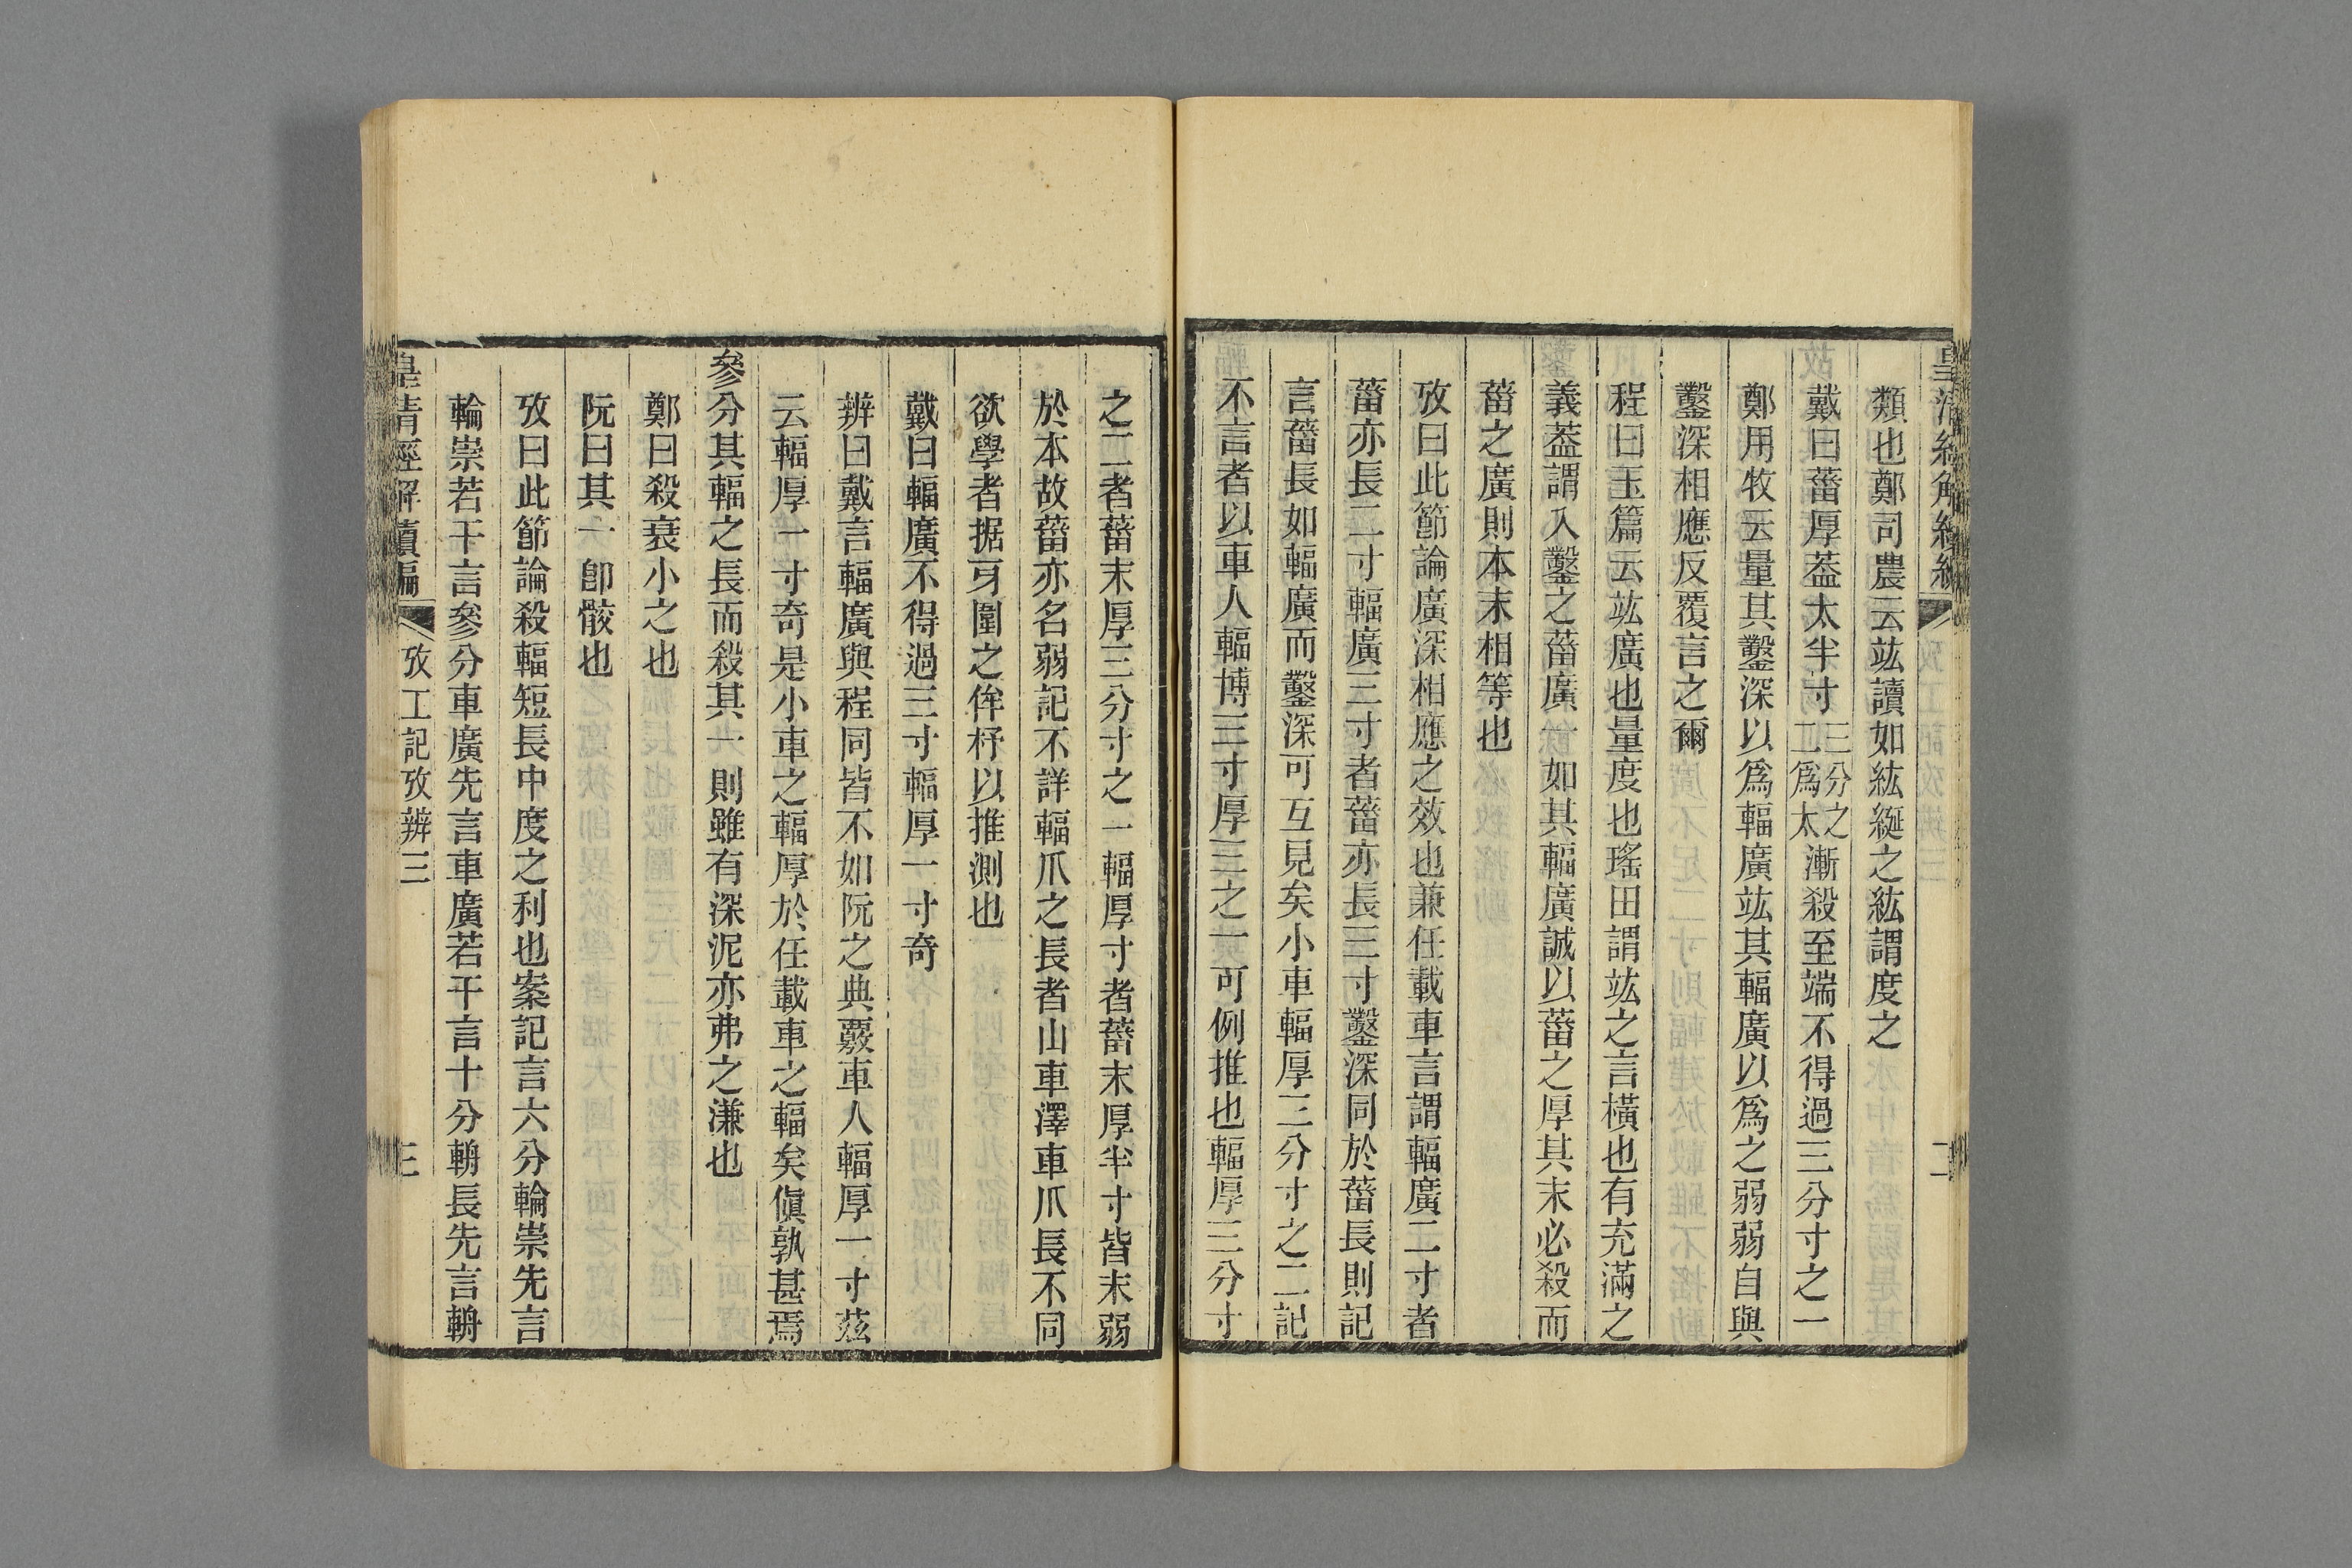 類也鄭司農云竑讀如紘綖之紘謂度之
戴曰菑厚葢太半寸三分之二爲太漸殺至端不得過三分寸之一
鄭用牧云量其鑿深以爲輻廣竑其輻廣以爲之弱弱自與
鑿深相應反覆言之爾
程曰玉篇云竑廣也量度也瑤田謂竑之言橫也有充滿之
義葢謂入鑿之菑廣一如其輻廣誠以菑之厚其末必殺而
菑之廣則本末相等也
攷曰此節論廣深相應之效也兼任載車言謂輻廣二寸者
菑亦長二寸輻廣三寸者菑亦長三寸鑿深同於菑長則記
言菑長如輻廣而鑿深可互見矣小車輻厚三分寸之二記
不言者以車人輻博三寸厚三之一可例推也輻厚三分寸
之二者菑末厚三分寸之一輻厚寸者菑末厚半寸皆末弱
於本故菑亦名弱記不詳輻爪之長者山車澤車爪長不同
欲學者据牙圍之侔杼以推測也
戴曰輻廣不得過三寸輻厚一寸奇
辨曰戴言輻廣與程同皆不如阮之典覈車人輻厚一寸茲
云輻厚一寸奇是小車之輻厚於任載車之輻矣傎孰甚焉
參分其輻之長而殺其一則雖有深泥亦弗之溓也
鄭曰殺衰小之也
阮曰其一卽骹也
攷曰此節論殺輻短長中度之利也案記言六分輪崇先言
輪崇若干言參分車廣先言車廣若干言十分輈長先言輈
皇清經解續編
攷工記攷辨三
三